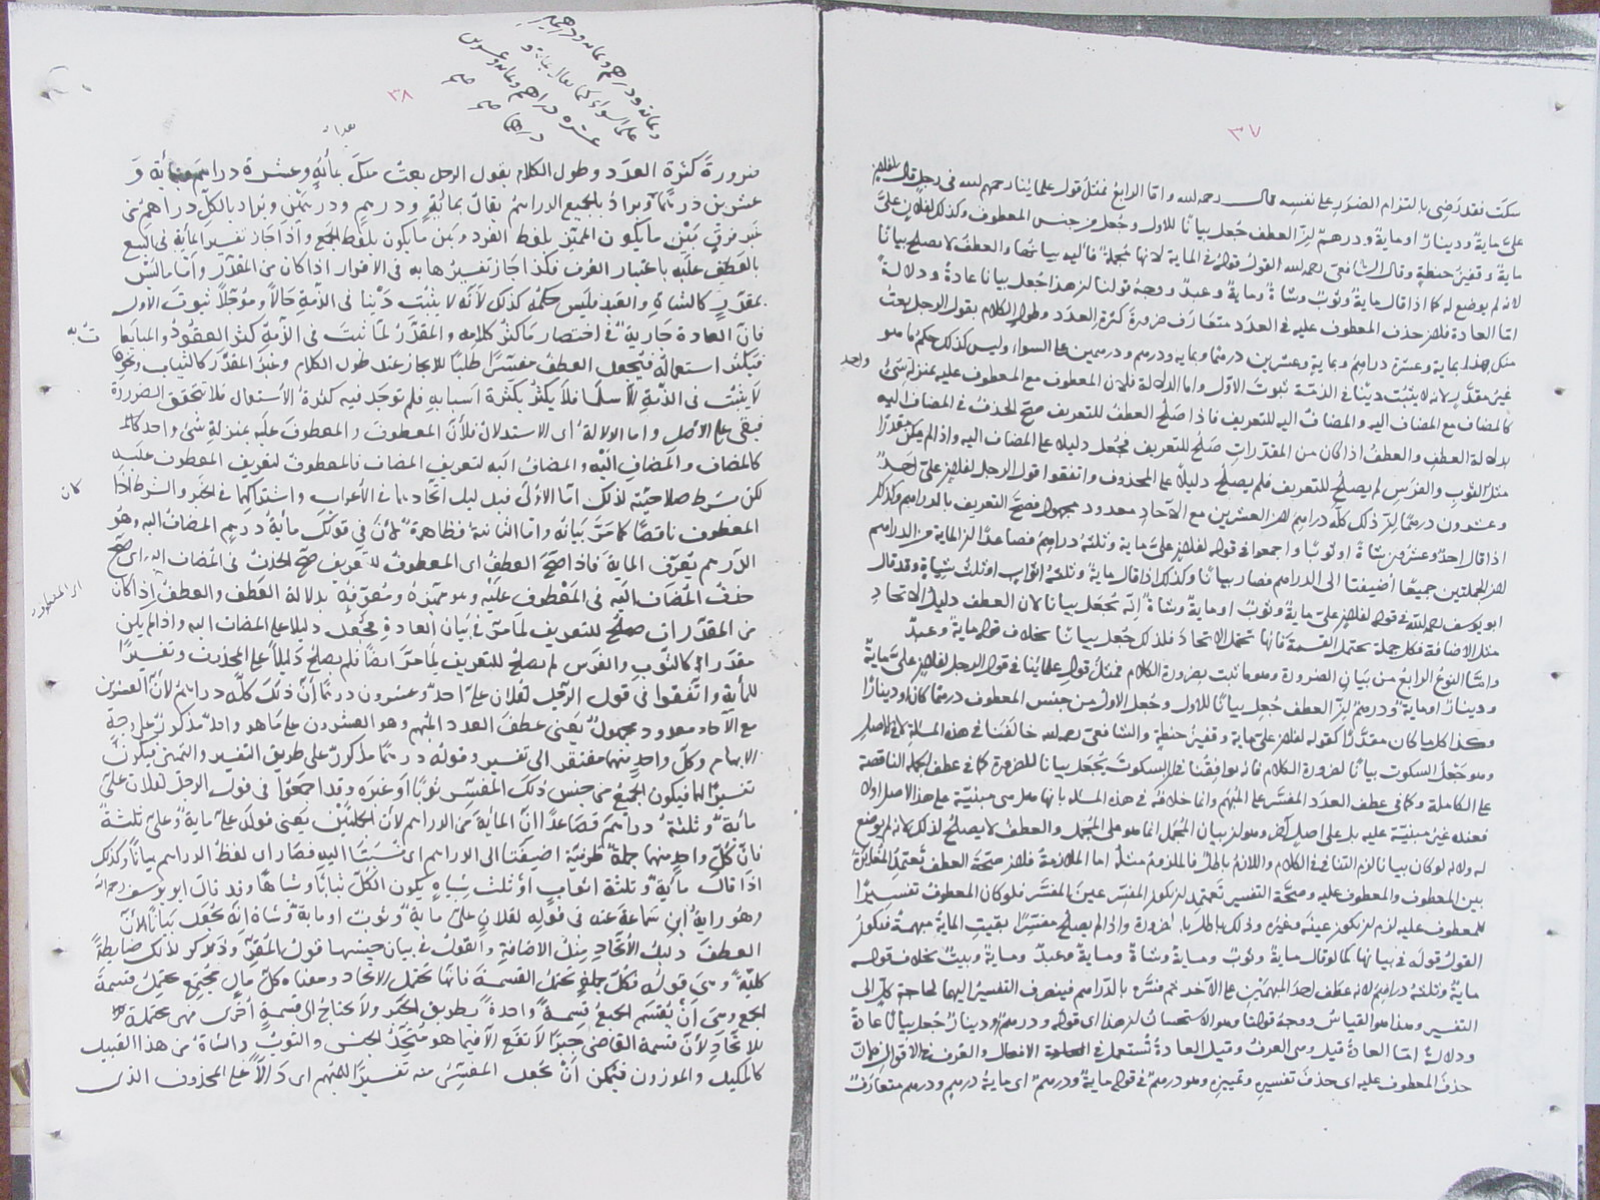 ٣٧
سكت فقد رضى بالتزام الضرر على نفسه قال رحمه الله واما الرابع فمثل قول علمائنا رحمهم الله فى رجل قال لفلان
على ماية ودينار او ماية ودرهم ان العطف جعل بيانا للاول وجعل من جنس المعطوف وكذلك لفلان على
ماية وقفيز حنطة وقال الشافعى رحمه الله القول قوله فى الماية لانها مجملة فاليه بيانها والعطف لا يصلح بيانا
لانه لم يوضع له كما اذا قال ماية وثوب وشاة وماية وعبد ووجه قولنا ان هذا يجعل بيانا عادة ودلالة
اما العادة فلان حذف المعطوف عليه فى العدد متعارف ضرورة كثرة العدد وطول الكلام يقول الرجل بعت
منك هذا بماية وعشرة دراهم وبماية وعشرين درهما وبماية ودرهم ودرهمين على السواء وليس كذلك حكم ما هو
غير مقدر لانه لا يثبت دينا فى الذمة ثبوت الاول واما الدلالة فلان المعطوف مع المعطوف عليه بمنزلة شئ
واحد
كالمضاف مع المضاف اليه والمضاف اليه للتعريف فاذا صلح العطف للتعريف صح الحذف فى المضاف اليه
بدلالة العطف والعطف اذا كان من المقدرات صلح للتعريف فجعل دليلا على المضاف اليه واذا لم يكن مقدرا
مثل الثوب والفرس لم يصلح للتعريف فلم يصلح دليلا على المحذوف واتفقوا فى قول الرجل لفلان على احد
وعشرون درهما ان ذلك كله دراهم لان العشرين مع الآحاد معدود مجهول فصح التعريف بالدراهم وكذلك
اذا قال احد وعشرون شاة او ثوبا واجمعوا فى قوله لفلان على ماية وثلثة دراهم فصاعدا ان الماية من الدراهم
لان الجملتين جميعا اضيفتا الى الدراهم فصار بيانا وكذلك اذا قال ماية وثلثة اثواب او ثلث شياه وقد قال
ابو يوسف رحمه الله فى قوله لفلان على ماية وثوب او ماية وشاة انه يجعل بيانا لان العطف دليل الاتحاد
مثل الاضافة فكل جملة يحتمل القسمة فانها تحتمل الاتحاد فلذلك جعل بيانا بخلاف قوله ماية وعبد
واما النوع الرابع من بيان الضرورة وهو ما ثبت بضرورة الكلام فمثل قول علمائنا فى قول الرجل لفلان على ماية
ودينار او ماية ودرهم ان العطف جعل بيانا للاول وجعل الاول من جنس المعطوف درهما كان او دينارا
وكذا كل ما كان مقدرا كقوله لفلان على ماية وقفيز حنطة والشافعى رحمه الله خالفنا فى هذه المسألة لا فى الاصل
وهو جعل السكوت بيانا لضرورة الكلام فانه يوافقنا فى ان السكوت يجعل بيانا للضرورة كما فى عطف الجملة الناقصة
على الكاملة وكما فى عطف العدد المفسر على المبهم وانما خلافه فى هذه المسئلة بانها هل هى مبنية على هذا الاصل اولا
فعنده غير مبنية عليه بل على اصل آخر وهو ان بيان المجمل انما هو على المجمل والعطف لا يصلح لذلك لانه لم يوضع
له ولانه لو كان بيانا لزم التنافى فى الكلام واللازم باطل فالملزوم مثله اما الملازمة فلان صحة العطف تعتمد المغايرة
بين المعطوف والمعطوف عليه وصحة التفسير تعتمد ان يكون المفسر عين المفسر فلو كان المعطوف تفسيرا
للمعطوف عليه لزم ان يكون عينه وغيره وذلك باطل بالضرورة واذا لم يصلح مفسرا بقيت الماية مبهمة فيكون
القول قوله فى بيانها كما لو قال ماية وثوب وماية وشاة وماية وعبد وماية وبيت بخلاف قوله
ماية وثلثة دراهم لانه عطف احد المبهمين على الآخر ثم فسره بالدراهم فينصرف التفسير اليهما لحاجة كل الى
التفسير وهذا هو القياس ووجه قولنا وهو الاستحسان ان هذا اى قوله ودرهم او ودينار جعل بيانا عادة
ودلالة اما العادة قيل وهى العرف وقيل العادة تستعمل فى الافعال والعرف فى الاقوال فلان
حذف المعطوف عليه اى حذف تفسيره وتمييزه وهو درهم فى قوله ماية ودرهم اى ماية درهم ودرهم متعارف
٣٨
ضرورة كثرة العدد وطول الكلام يقول الرجل بعت منك بمأية وعشرة دراهم وبمأية و
عشرين درهما ويراد بالجميع الدراهم يقال بمائة ودرهم ودرهمين ويراد بالكل دراهم من
غير فرق بين ما يكون المميز بلفظ الفرد وبين ما يكون بلفظ الجمع واذا جاز تفسير المأية فى البيع
بالعطف عليه باعتبار العرف فكذا جاز تفسيرها به فى الاقرار اذا كان من المقدر واما ما ليس
بمقدر كالشاة والعبد فليس حكمه كذلك لانه لا يثبت دينا فى الذمة حالا ومؤجلا ثبوت الاول
فان العادة جارية فى اختصار ما كثر كلامه والمقدر لما ثبت فى الذمة كثر العقود والمبايعات
به
فيكثر استعماله فيجعل العطف مفسرا طلبا للايجاز عند طول الكلام وغير المقدر كالثياب ونحوها
لا يثبت فى الذمة الا سلما فلا يكثر بكثرة اسبابه فلم توجد فيه كثرة الاستعمال فلا تتحقق الضرورة
فبقى على الاصل واما الدلالة اى الاستدلال فلان المعطوف والمعطوف عليه بمنزلة شئ واحد
كالمضاف والمضاف اليه والمضاف اليه لتعريف المضاف فالمعطوف لتعريف المعطوف عليه
لكن شرط صلاحيته لذلك اما الاولى فبدليل اتحادهما فى الاعراب واشتراكهما فى الخبر والشرط اذا
كان
المعطوف ناقصا كما مر بيانه واما الثانية فظاهرة لان فى قولك مأية درهم المضاف اليه وهو
الدرهم يعرف الماية فاذا صح العطف اى المعطوف للتعريف صح الحذف فى المضاف اليه اى صح
حذف المضاف اليه فى المعطوف عليه وهو مميزه ومعرفه بدلالة العطف والعطف اذا كان
اى المعطوف
من المقدرات صلح للتعريف لما مر فى بيان العادة فجعل دليلا على المضاف اليه واذا لم يكن
مقدرا كالثوب والفرس لم يصلح للتعريف لما مر ايضا فلم يصلح دليلا على المحذوف وتفسيرا
للمأية واتفقوا فى قول الرجل لفلان على احد وعشرون درهما ان ذلك كله دراهم لان العشرين
مع الآحاد معدود مجهول يعنى عطف العدد المبهم وهو العشرون على ما هو واحد مذكور على وجه
الابهام وكل واحد منهما مفتقر الى تفسير وقوله درهما مذكور على طريق التفسير والتمييز فيكون
تفسيرا لهما فيكون الجميع من جنس ذلك المفسر ثوبا او غيره وقد اجمعوا فى قول الرجل لفلان على
مأية وثلثة دراهم فصاعدا ان المأية من الدراهم لان الجملتين يعنى قوله على ماية وعلى ثلثة
فان كل واحد منهما جملة ظرفية اضيفتا الى الدراهم اى نسبتا اليه فصار اى لفظ الدراهم بيانا وكذلك
اذا قال مأية وثلثة اثواب او ثلث شياه يكون الكل ثيابا وشاها وقد قال ابو يوسف رحمه الله
وهو رواية ابن سماعة عنه فى قوله لفلان على ماية وثوب او ماية وشاة انه يجعل بيانا لان
العطف دليل الاتحاد مثل الاضافة والقول فى بيان جنسها قول المقر وذكر لذلك ضابطة
كلية وهى قوله فكل جملة تحتمل القسمة فانها تحتمل الاتحاد ومعناه كل مال مجتمع يحتمل قسمة
الجمع وهى ان يقسم الجميع قسمة واحدة بطريق الجبر ولا يحتاج الى قسمة اخرى فهى محتملة
للاتحاد لان قسمة القاضى جبرا لا تقع الا فيما هو متحد الجنس والثوب والشاة من هذا القبيل
كالمكيل والموزون فيمكن ان يجعل المفسر منه تفسيرا للمبهم اى دالا على المحذوف الذى